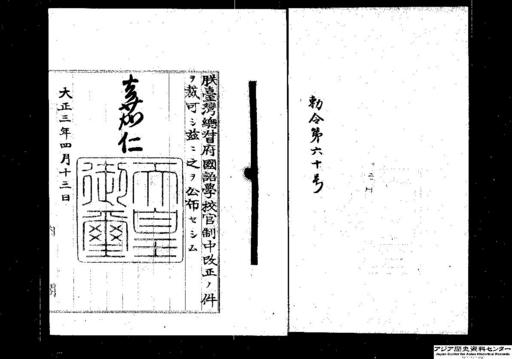 勅令第六十号
朕臺灣總督府國語學校官制中改正ノ件
ヲ裁可シ玆ニ之ヲ公布セシム
嘉仁
天皇御璽
大正三年四月十三日
アジア歴史資料センター
Japan Center for Asian Historical Records